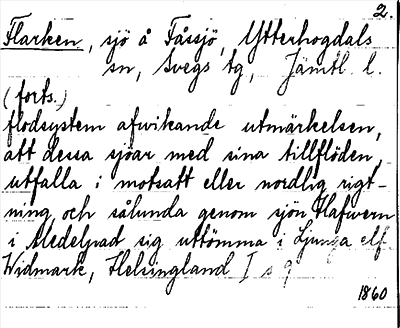 2.
Flarken, sjö å Fåssjö, Ytterhogdals
sn, Svegs tg, Jämtl. l.
(forts.)
flodsystem afvikande utmärkelsen,
att dessa sjöar med sina tillflöden
utfalla i motsatt eller nordlig rigt-
ning och sålunda genom sjön Hafvern
i Medelpad sig uttömma i Ljunga elf
Widmark, Helsingland I s 9
1860